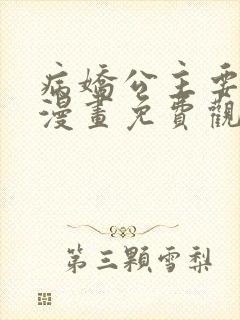 病嬌公主要
漫畫免費觀
第三顆雪梨